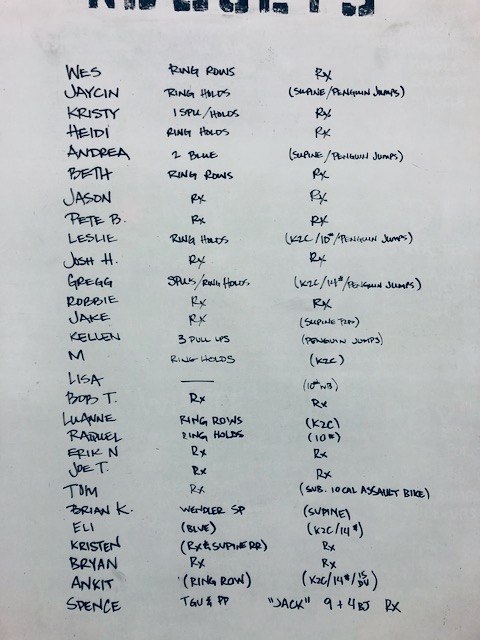 WES RING ROWS Rx
JAYCIN RING HOLDS (SUPINE/PENGUIN JUMPS)
KRISTY 1 SPU/HOLDS Rx
HEIDI RING HOLDS Rx
ANDREA 2 BLUE (SUPINE/PENGUIN JUMPS)
BETH RING ROWS Rx
JASON Rx Rx
PETE B. Rx Rx
LESLIE RING HOLDS (K2C/10#/PENGUIN JUMPS)
JOSH H. Rx Rx
GREGG SPUS/RING HOLDS (K2C/14#/PENGUIN JUMPS)
ROBBIE Rx Rx
JAKE Rx (SUPINE
KELLEN 3 PULL UPS (PENGUIN JUMPS)
M RING HOLDS (K2C)
LISA — (10# WB)
BOB T. Rx Rx
LUANNE RING ROWS (K2C)
RAQUEL RING HOLDS (10#)
ERIK N Rx Rx
JOE T. Rx Rx
TOM Rx (SUB. 10 CAL ASSAULT BIKE)
BRIAN K. WENDLER SP (SUPINE)
ELI (BLUE) (K2C/14#)
KRISTEN (Rx & SUPINE RR) Rx
BRYAN Rx Rx
ANKIT (RING ROW) (K2C/14#/15 DU)
SPENCE TGU & PP "JACK" 9 + 4 BJ Rx